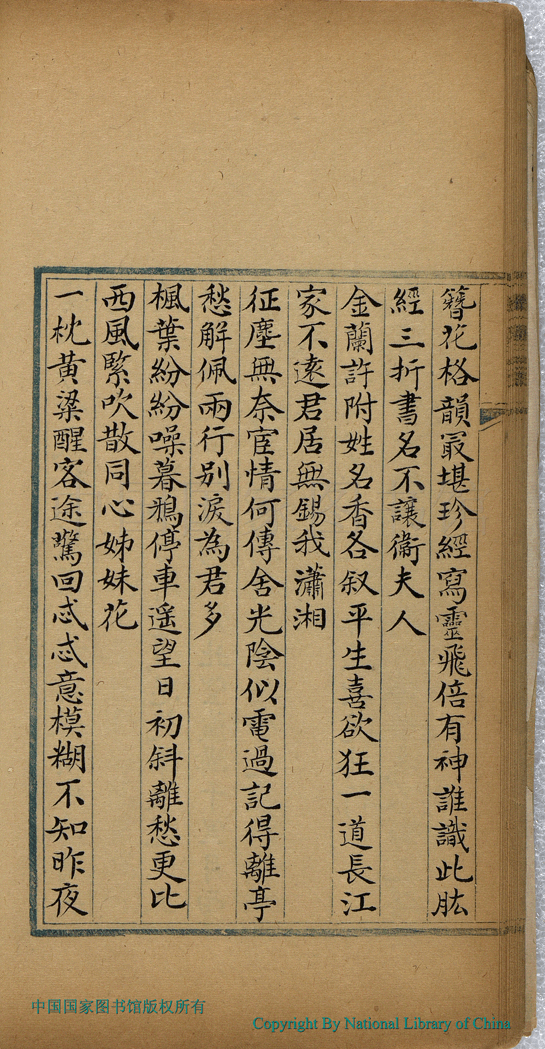 簪花格韻最堪珍經寫靈飛倍有神誰識此肱
經三折書名不讓衛夫人
金蘭許附姓名香各叙平生喜欲狂一道長江
家不遠君居無錫我瀟湘
征塵無奈宦情何傳舍光陰似電過記得離亭
愁解佩兩行别淚為君多
楓葉紛紛噪暮鴉停車遥望日初斜離愁更比
西風緊吹散同心姊妹花
一枕黄粱醒客途驚回忒忒意模糊不知昨夜
中国国家图书馆版权所有
Copyright By National Library of China